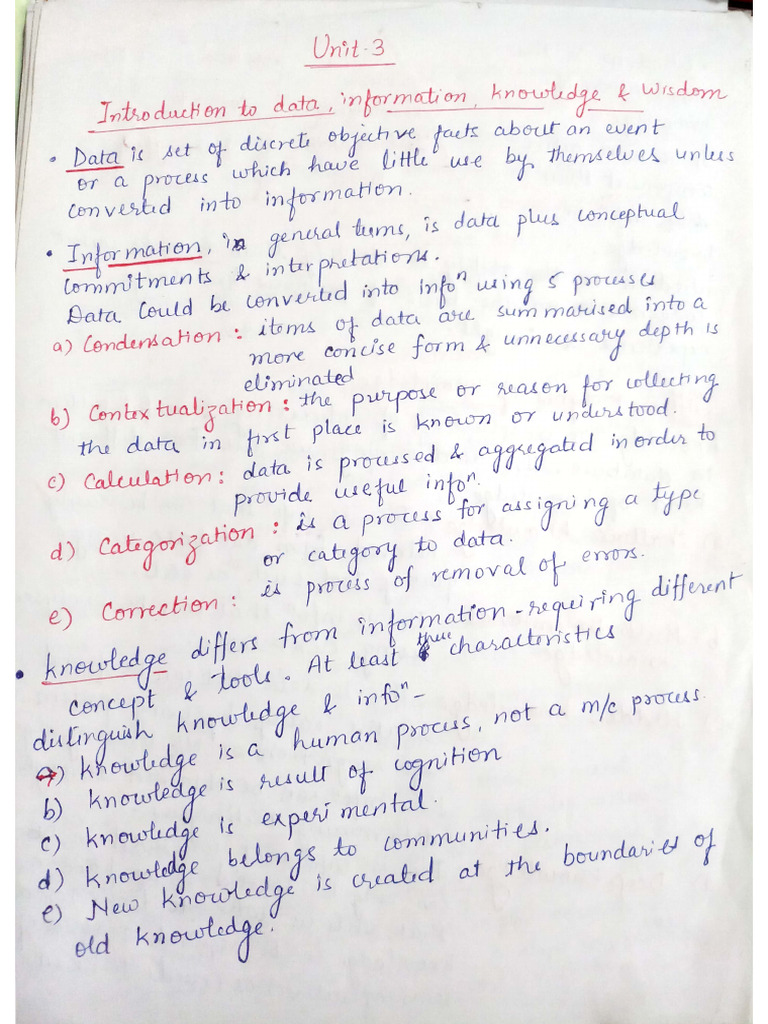 Unit-3
Introduction to data, information, knowledge & Wisdom
• Data is set of discrete objective facts about an event
or a process which have little use by themselves unless
converted into information.
• Information, in general terms, is data plus conceptual
commitments & interpretations.
Data could be converted into infoⁿ using 5 processes
a) Condensation: items of data are summarised into a
more concise form & unnecessary depth is
eliminated
b) Contextualization: the purpose or reason for collecting
the data in first place is known or understood.
c) Calculation: data is processed & aggregated in order to
provide useful infoⁿ.
d) Categorization: is a process for assigning a type
or category to data.
e) Correction: is process of removal of errors.
• Knowledge differs from information - requiring different
concept & tools. At least these characteristics
distinguish knowledge & infoⁿ -
a) Knowledge is a human process, not a m/c process.
b) Knowledge is result of cognition
c) Knowledge is experimental.
d) Knowledge belongs to communities.
e) New knowledge is created at the boundaries of
old knowledge.